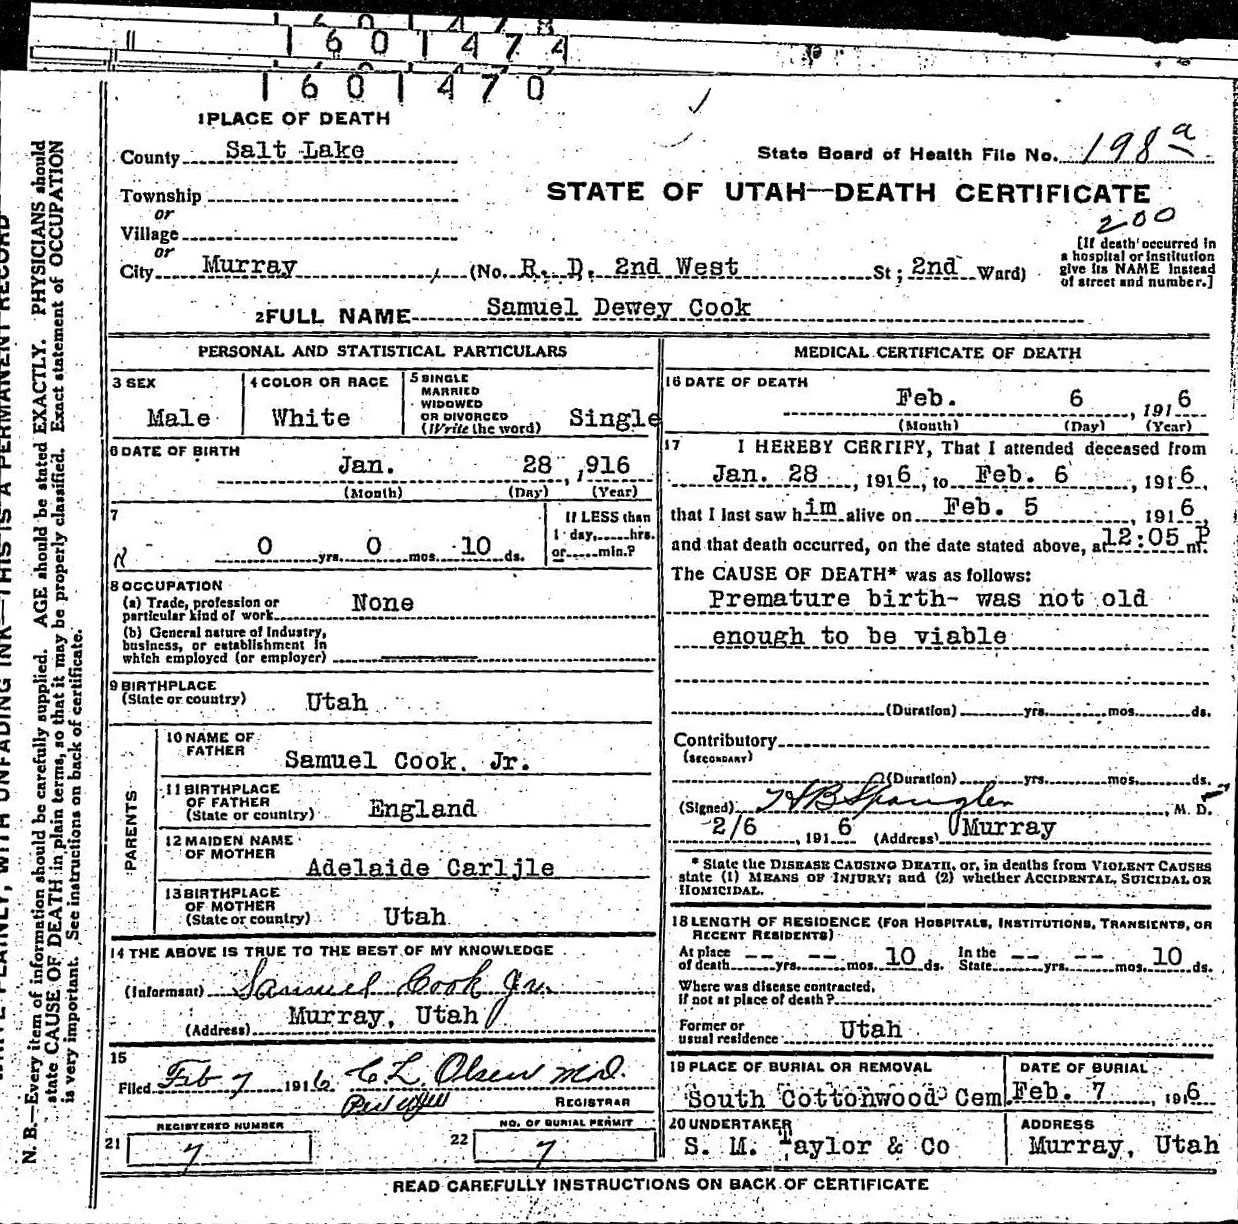 1601474
1601470
1 PLACE OF DEATH
County Salt Lake
State Board of Health File No. 198 a
Township
or
Village
or
STATE OF UTAH—DEATH CERTIFICATE
200
[If death occurred in
a hospital or institution
give its NAME instead
of street and number.]
City Murray (No. R. D. 2nd West St; 2nd Ward)
2 FULL NAME Samuel Dewey Cook
PERSONAL AND STATISTICAL PARTICULARS
3 SEX
Male
4 COLOR OR RACE
White
5 SINGLE
MARRIED
WIDOWED
OR DIVORCED
(Write the word) Single
6 DATE OF BIRTH
Jan. 28, 916
(Month) (Day) (Year)
7
0 yrs. 0 mos. 10 ds.
If LESS than
1 day, hrs.
or min.?
8 OCCUPATION
(a) Trade, profession or
particular kind of work None
(b) General nature of Industry,
business, or establishment in
which employed (or employer)
9 BIRTHPLACE
(State or country) Utah
PARENTS
10 NAME OF
FATHER
Samuel Cook. Jr.
11 BIRTHPLACE
OF FATHER
(State or country) England
12 MAIDEN NAME
OF MOTHER
Adelaide Carljle
13 BIRTHPLACE
OF MOTHER
(State or country) Utah
14 THE ABOVE IS TRUE TO THE BEST OF MY KNOWLEDGE
(Informant) Samuel Cook Jr.
(Address) Murray, Utah
15
Filed Feb 7 1916 C. L. Olsen M.D.
REGISTRAR
REGISTERED NUMBER
21 7
NO. OF BURIAL PERMIT
22 7
MEDICAL CERTIFICATE OF DEATH
16 DATE OF DEATH
Feb. 6, 1916
(Month) (Day) (Year)
17 I HEREBY CERTIFY, That I attended deceased from
Jan. 28, 1916, to Feb. 6, 1916,
that I last saw him alive on Feb. 5, 1916,
and that death occurred, on the date stated above, at 12:05 P m.
The CAUSE OF DEATH* was as follows:
Premature birth- was not old
enough to be viable
(Duration) yrs. mos. ds.
Contributory
(SECONDARY)
(Duration) yrs. mos. ds.
(Signed) H B Spangler, M. D.
2/6, 1916 (Address) Murray
* State the DISEASE CAUSING DEATH, or, in deaths from VIOLENT CAUSES
state (1) MEANS OF INJURY; and (2) whether ACCIDENTAL, SUICIDAL OR
HOMICIDAL.
18 LENGTH OF RESIDENCE (FOR HOSPITALS, INSTITUTIONS, TRANSIENTS, OR
RECENT RESIDENTS)
At place
of death -- yrs. -- mos. 10 ds. In the
State -- yrs. -- mos. 10 ds.
Where was disease contracted,
if not at place of death?
Former or
usual residence Utah
19 PLACE OF BURIAL OR REMOVAL
South Cottonwood Cem.
DATE OF BURIAL
Feb. 7, 1916
20 UNDERTAKER
S. M. Taylor & Co
ADDRESS
Murray, Utah
READ CAREFULLY INSTRUCTIONS ON BACK OF CERTIFICATE
WRITE PLAINLY, WITH UNFADING INK—THIS IS A PERMANENT RECORD
N. B.—Every item of information should be carefully supplied. AGE should be stated EXACTLY. PHYSICIANS should
state CAUSE OF DEATH in plain terms, so that it may be properly classified. Exact statement of OCCUPATION
is very important. See instructions on back of certificate.